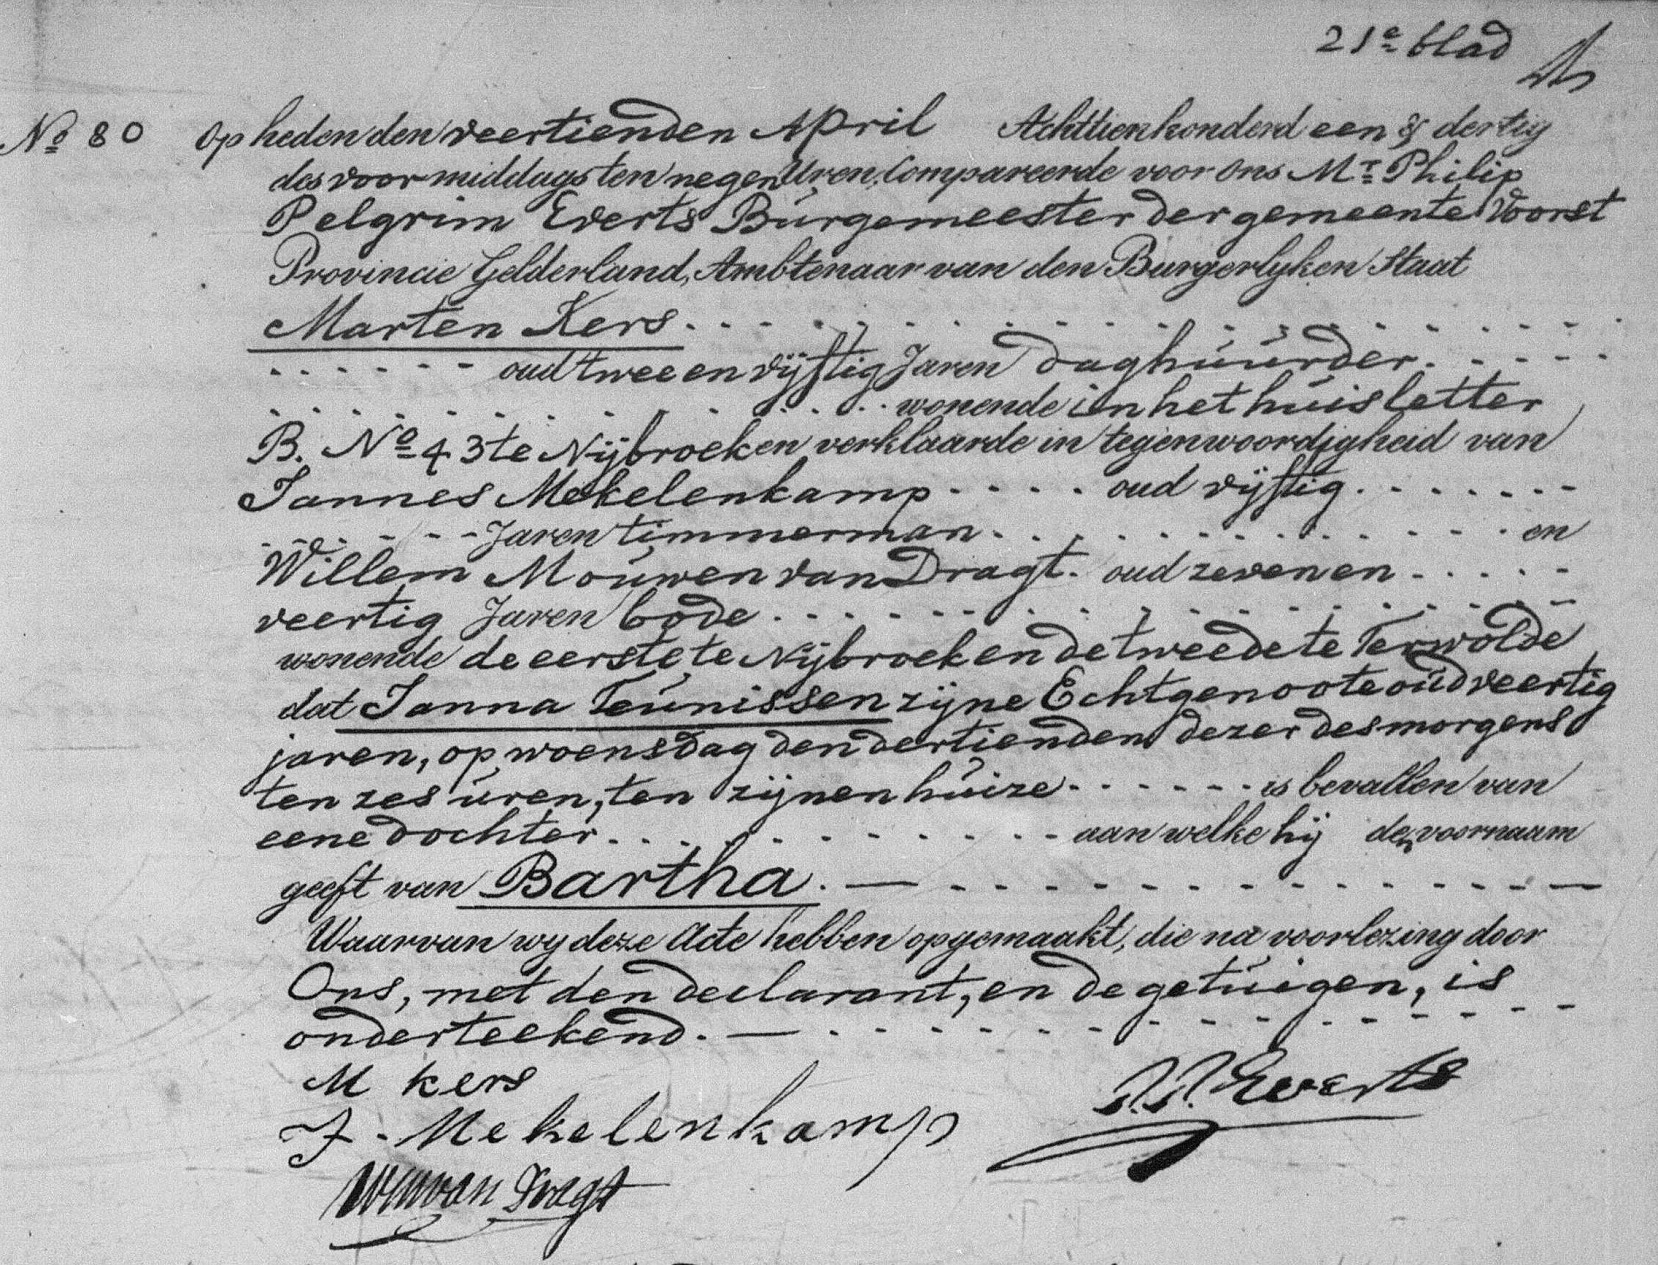 21e blad
No 80 Op heden den veertienden April Achttienhonderd een & dertig
des voormiddags ten negen Uren, Compareerde voor Ons Mr Philip
Pelgrim Everts Burgemeester der gemeente Voorst
Provincie Gelderland, Ambtenaar van den Burgerlyken Staat
Marten Kers
oud twee en vijftig Jaren daghuurder
wonende in het huis letter
B. No 43 te Nijbroek en verklaarde in tegenwoordigheid van
Jannes Mekelenkamp oud vijftig
Jaren timmerman en
Willem Mouwen van Dragt. oud zeven en
veertig Jaren bode
wonende de eerste te Nijbroek en de tweede te Terwolde
dat Janna Teunissen zijne Echtgenoote oud veertig
jaren, op woensdag den dertienden dezer des morgens
ten zes uren, ten zijnen huize is bevallen van
eene dochter aan welke hij den voornaam
geeft van Bartha.
Waarvan wy deze Acte hebben opgemaakt, die na voorlezing door
Ons, met den declarant, en de getuigen, is
onderteekend.
M kers
J. Mekelenkamp
P.P. Everts
WM van Dragt